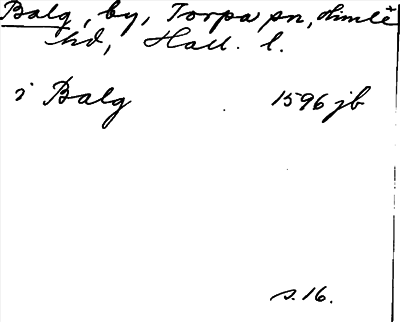 Balg, by, Torpa sn, Himle
hd, Hall. l.
i Balg 1596 jb
s. 16.